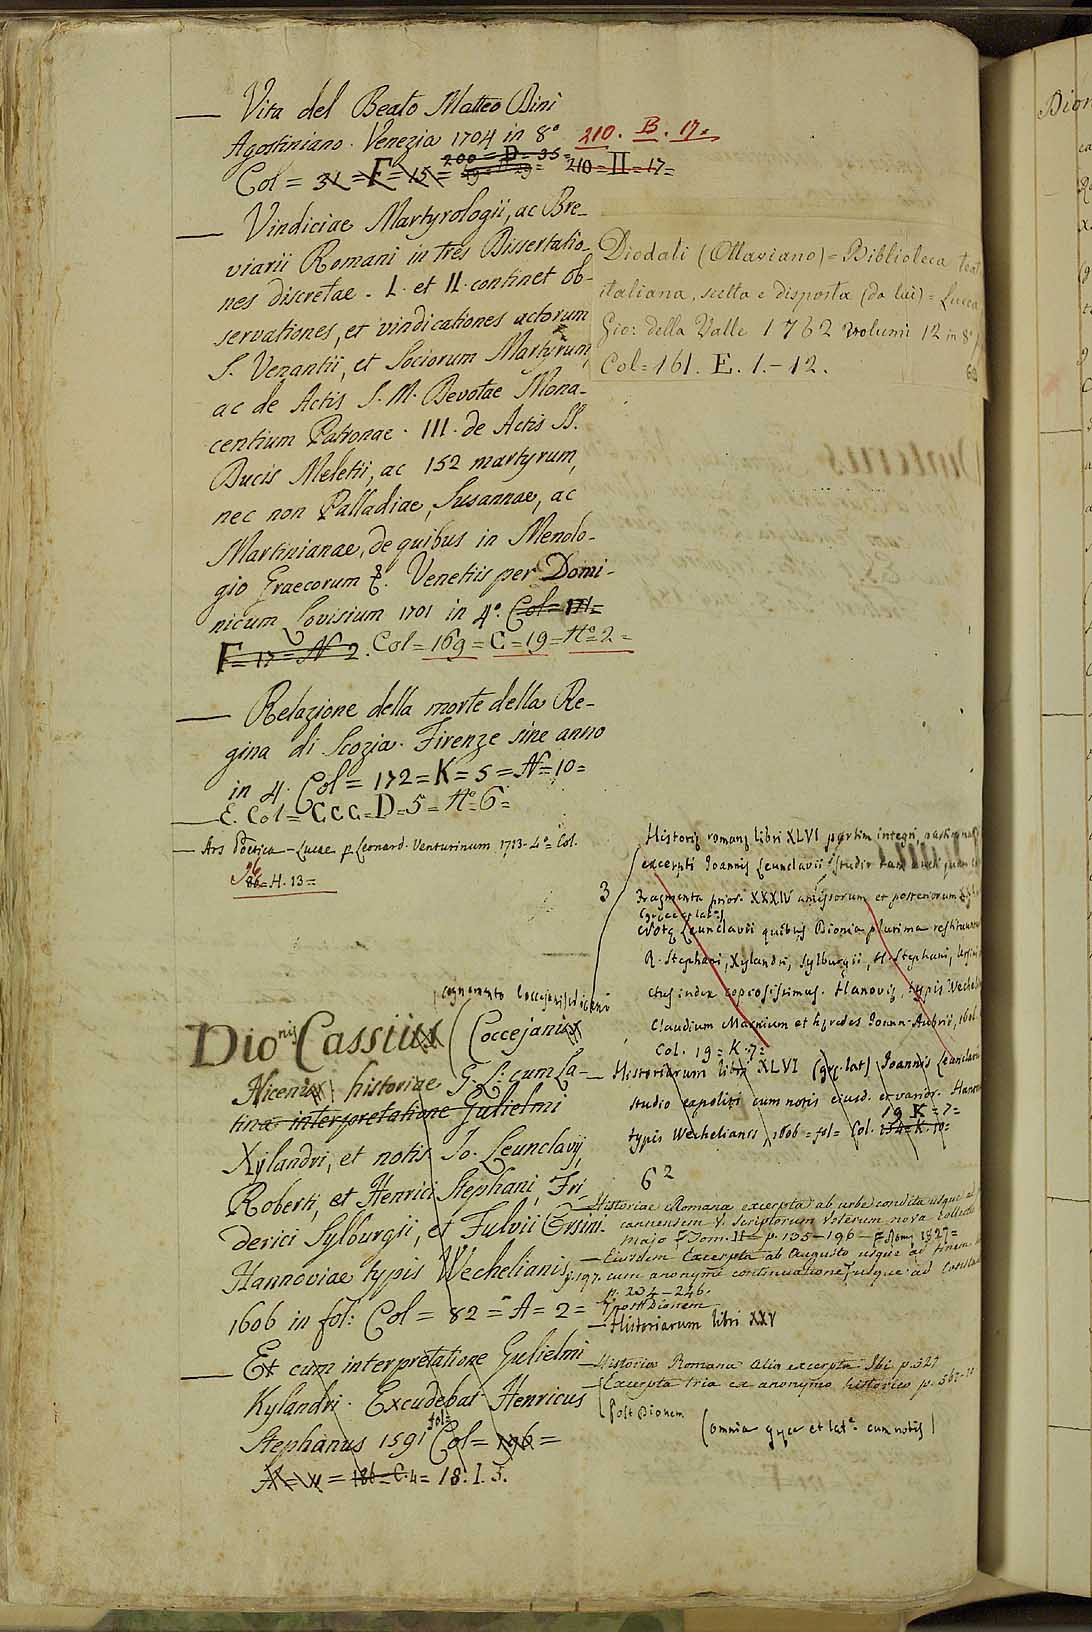 — Vita del Beato Matteo Dini
Agostiniano. Venezia 1704 in 8º 210. B. 17.
Col = 31 = F = 15 = 200 = D = 35 = 210 = II = 17 =
— Vindiciae Martyrologii, ac Bre-
viarii Romani in tres Dissertatio-
nes discretae. I. et II. continet ob-
servationes, et vindicationes actorum
S. Venantii, et Sociorum Martyrum,
ac de Actis S. M. Devotae Mona-
centium Patronae. III. de Actis SS.
Ducis Meletii, ac 152 martyrum,
nec non Palladiae, Susannae, ac
Martinianae, de quibus in Menolo-
gio Graecorum &. Venetiis per Domi-
nicum Lovisium 1701 in 4º. Col = 171 =
F = 17 = Nº 2. Col = 169 = C = 19 = Nº 2 =
— Relazione della morte della Re-
gina di Scozia. Firenze sine anno
in 4. Col = 172 = K = 5 = Nº = 10 =
— E. Col = CCC = D = 5 = Nº 6 =
— Ars Poetica — Lucae p. Leonard. Venturinum 1713 - 4º Col.
86 = H. 13 =
cognomento Coccejani
Dionis Cassius (Coccejanus
Nicenus historiae G. L. cum La-
tina interpretatione Gulielmi
Xylandri, et notis Jo. Leunclavij,
Roberti, et Henrici Stephani, Fri-
derici Sylburgii, et Fulvii Ursini.
Hannoviae typis Wechelianis
1606 in fol: Col = 82 = A = 2 =
— Et cum interpretatione Gulielmi
Xylandri. Excudebat Henricus
Stephanus 1591 fol= Col = 196 =
= 186 = C. 4 = 18. I. 5.
Diodati (Ottaviano) = Biblioteca teat
italiana, scelta e disposta (da lui) = Lucca
Gio: della Valle 1762 volumi 12 in 8º
Col = 161. E. 1. – 12.
Historiæ romanæ libri XLVI partim integri, partim
excerpti Joannis Leunclavii studio
3 Fragmenta prior. XXXIV amissorum et posteriorum
(græce et lat.)
Notæ Leunclavii quibus Dionis plurima restituuntur
R. Stephani, Xylandri, Sylburgii, H. Stephani, Ursini
index copiosissimus. Hanoviæ, typis Wechel
Claudium Marnium et hæredes Joann. Aubrii, 1606.
Col. 19 = K. 7 =
— Historiarum libri XLVI (græc. lat.) Joannis Leunclavii
studio expoliti cum notis ejusd. et varior. Hanov
typis Wechelianis 1606 = fol = Col. 19 K = 7 =
62
— Historiae Romanae excerpta ab urbe condita usque ad
cannensem V. Scriptorum Veterum nova Collectio
Maio Tom. II — p. 135 – 196 — Romae 1827 =
— Eiusdem Excerpta ab Augusto usque ad
p. 197. cum anonymi continuatione usque ad
p. 234 – 246.
post Dionem
— Historiarum libri XXV
— Historiae Romanae alia excerpta Ibi p. 527
— Excerpta tria ex anonymo historico p.
post Dionem
(omnia græce et latº. cum notis)